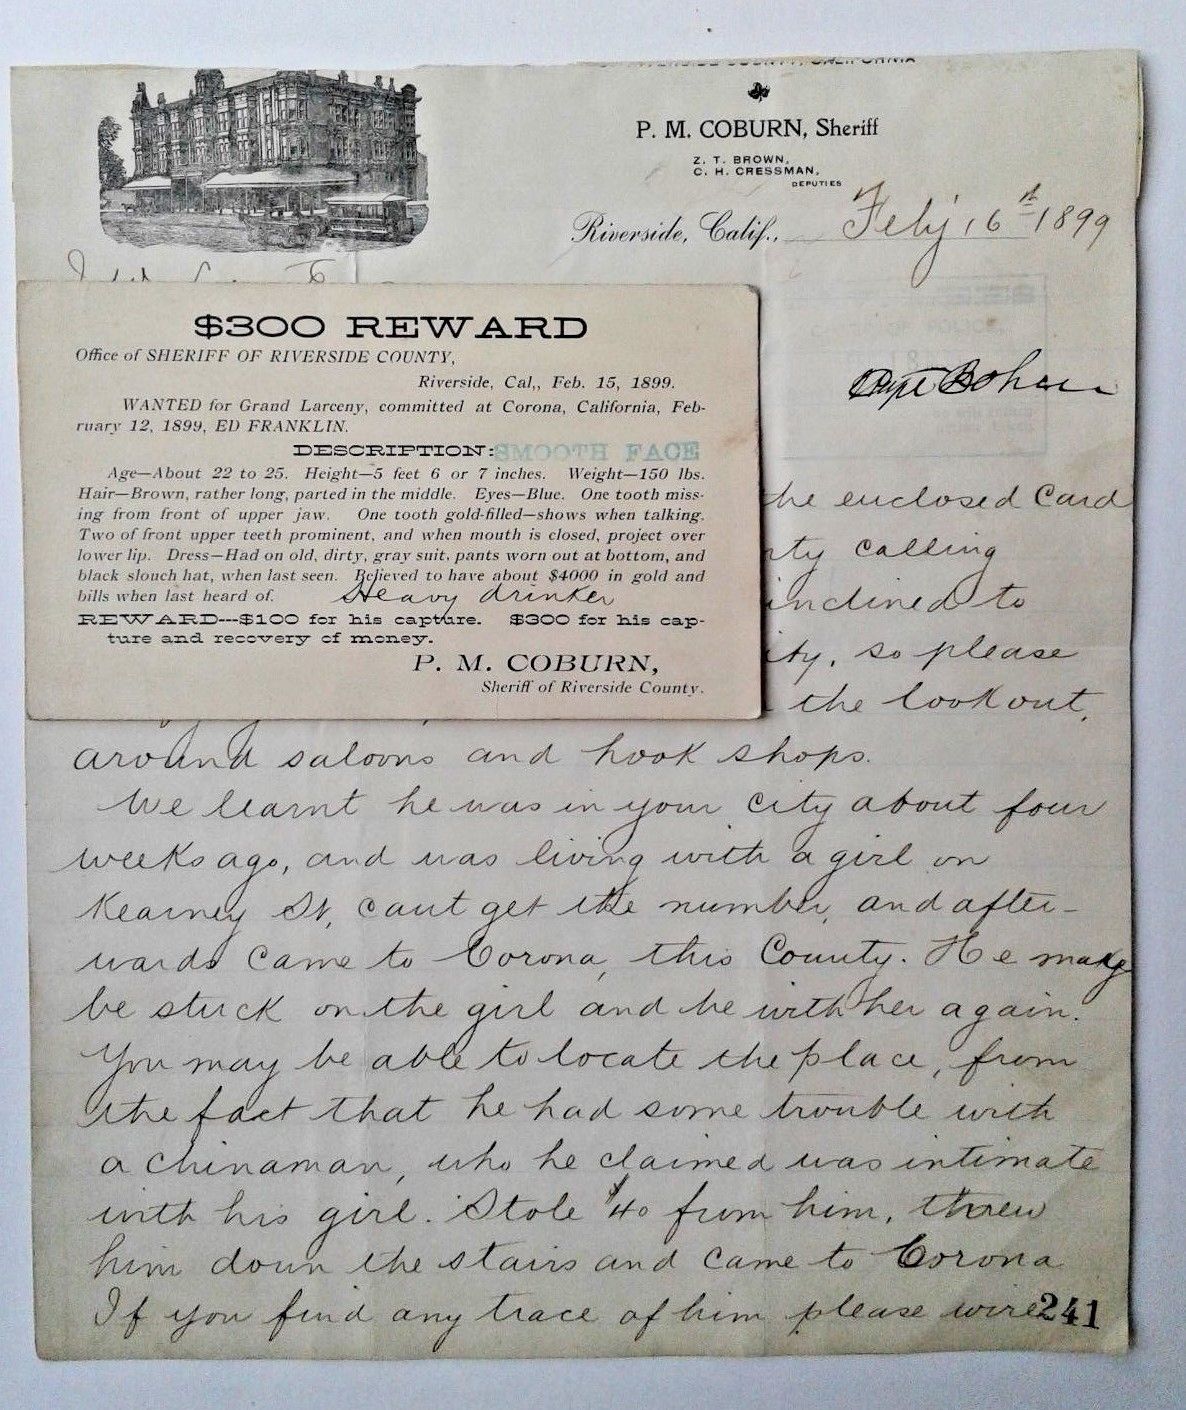 P. M. COBURN, Sheriff
Z. T. BROWN,
C. H. CRESSMAN,
DEPUTIES
Riverside, Calif., Feby 16th 1899
$300 REWARD
Office of SHERIFF OF RIVERSIDE COUNTY,
Riverside, Cal,, Feb. 15, 1899.
WANTED for Grand Larceny, committed at Corona, California, Feb-
ruary 12, 1899, ED FRANKLIN.
DESCRIPTION: SMOOTH FACE
Age—About 22 to 25. Height—5 feet 6 or 7 inches. Weight—150 lbs.
Hair—Brown, rather long, parted in the middle. Eyes—Blue. One tooth miss-
ing from front of upper jaw. One tooth gold-filled—shows when talking.
Two of front upper teeth prominent, and when mouth is closed, project over
lower lip. Dress—Had on old, dirty, gray suit, pants worn out at bottom, and
black slouch hat, when last seen. Believed to have about $4000 in gold and
bills when last heard of. Heavy drinker
REWARD---$100 for his capture. $300 for his cap-
ture and recovery of money.
P. M. COBURN,
Sheriff of Riverside County.
the enclosed Card
calling
inclined to
so please
the lookout,
around saloons and hook shops.
We learnt he was in your city about four
weeks ago, and was living with a girl on
Kearney St, cant get the number, and after-
wards came to Corona, this County. He may
be stuck on the girl and be with her again.
You may be able to locate the place, from
the fact that he had some trouble with
a chinaman, who he claimed was intimate
with his girl. Stole $40 from him, threw
him down the stairs and came to Corona
If you find any trace of him please wire
241